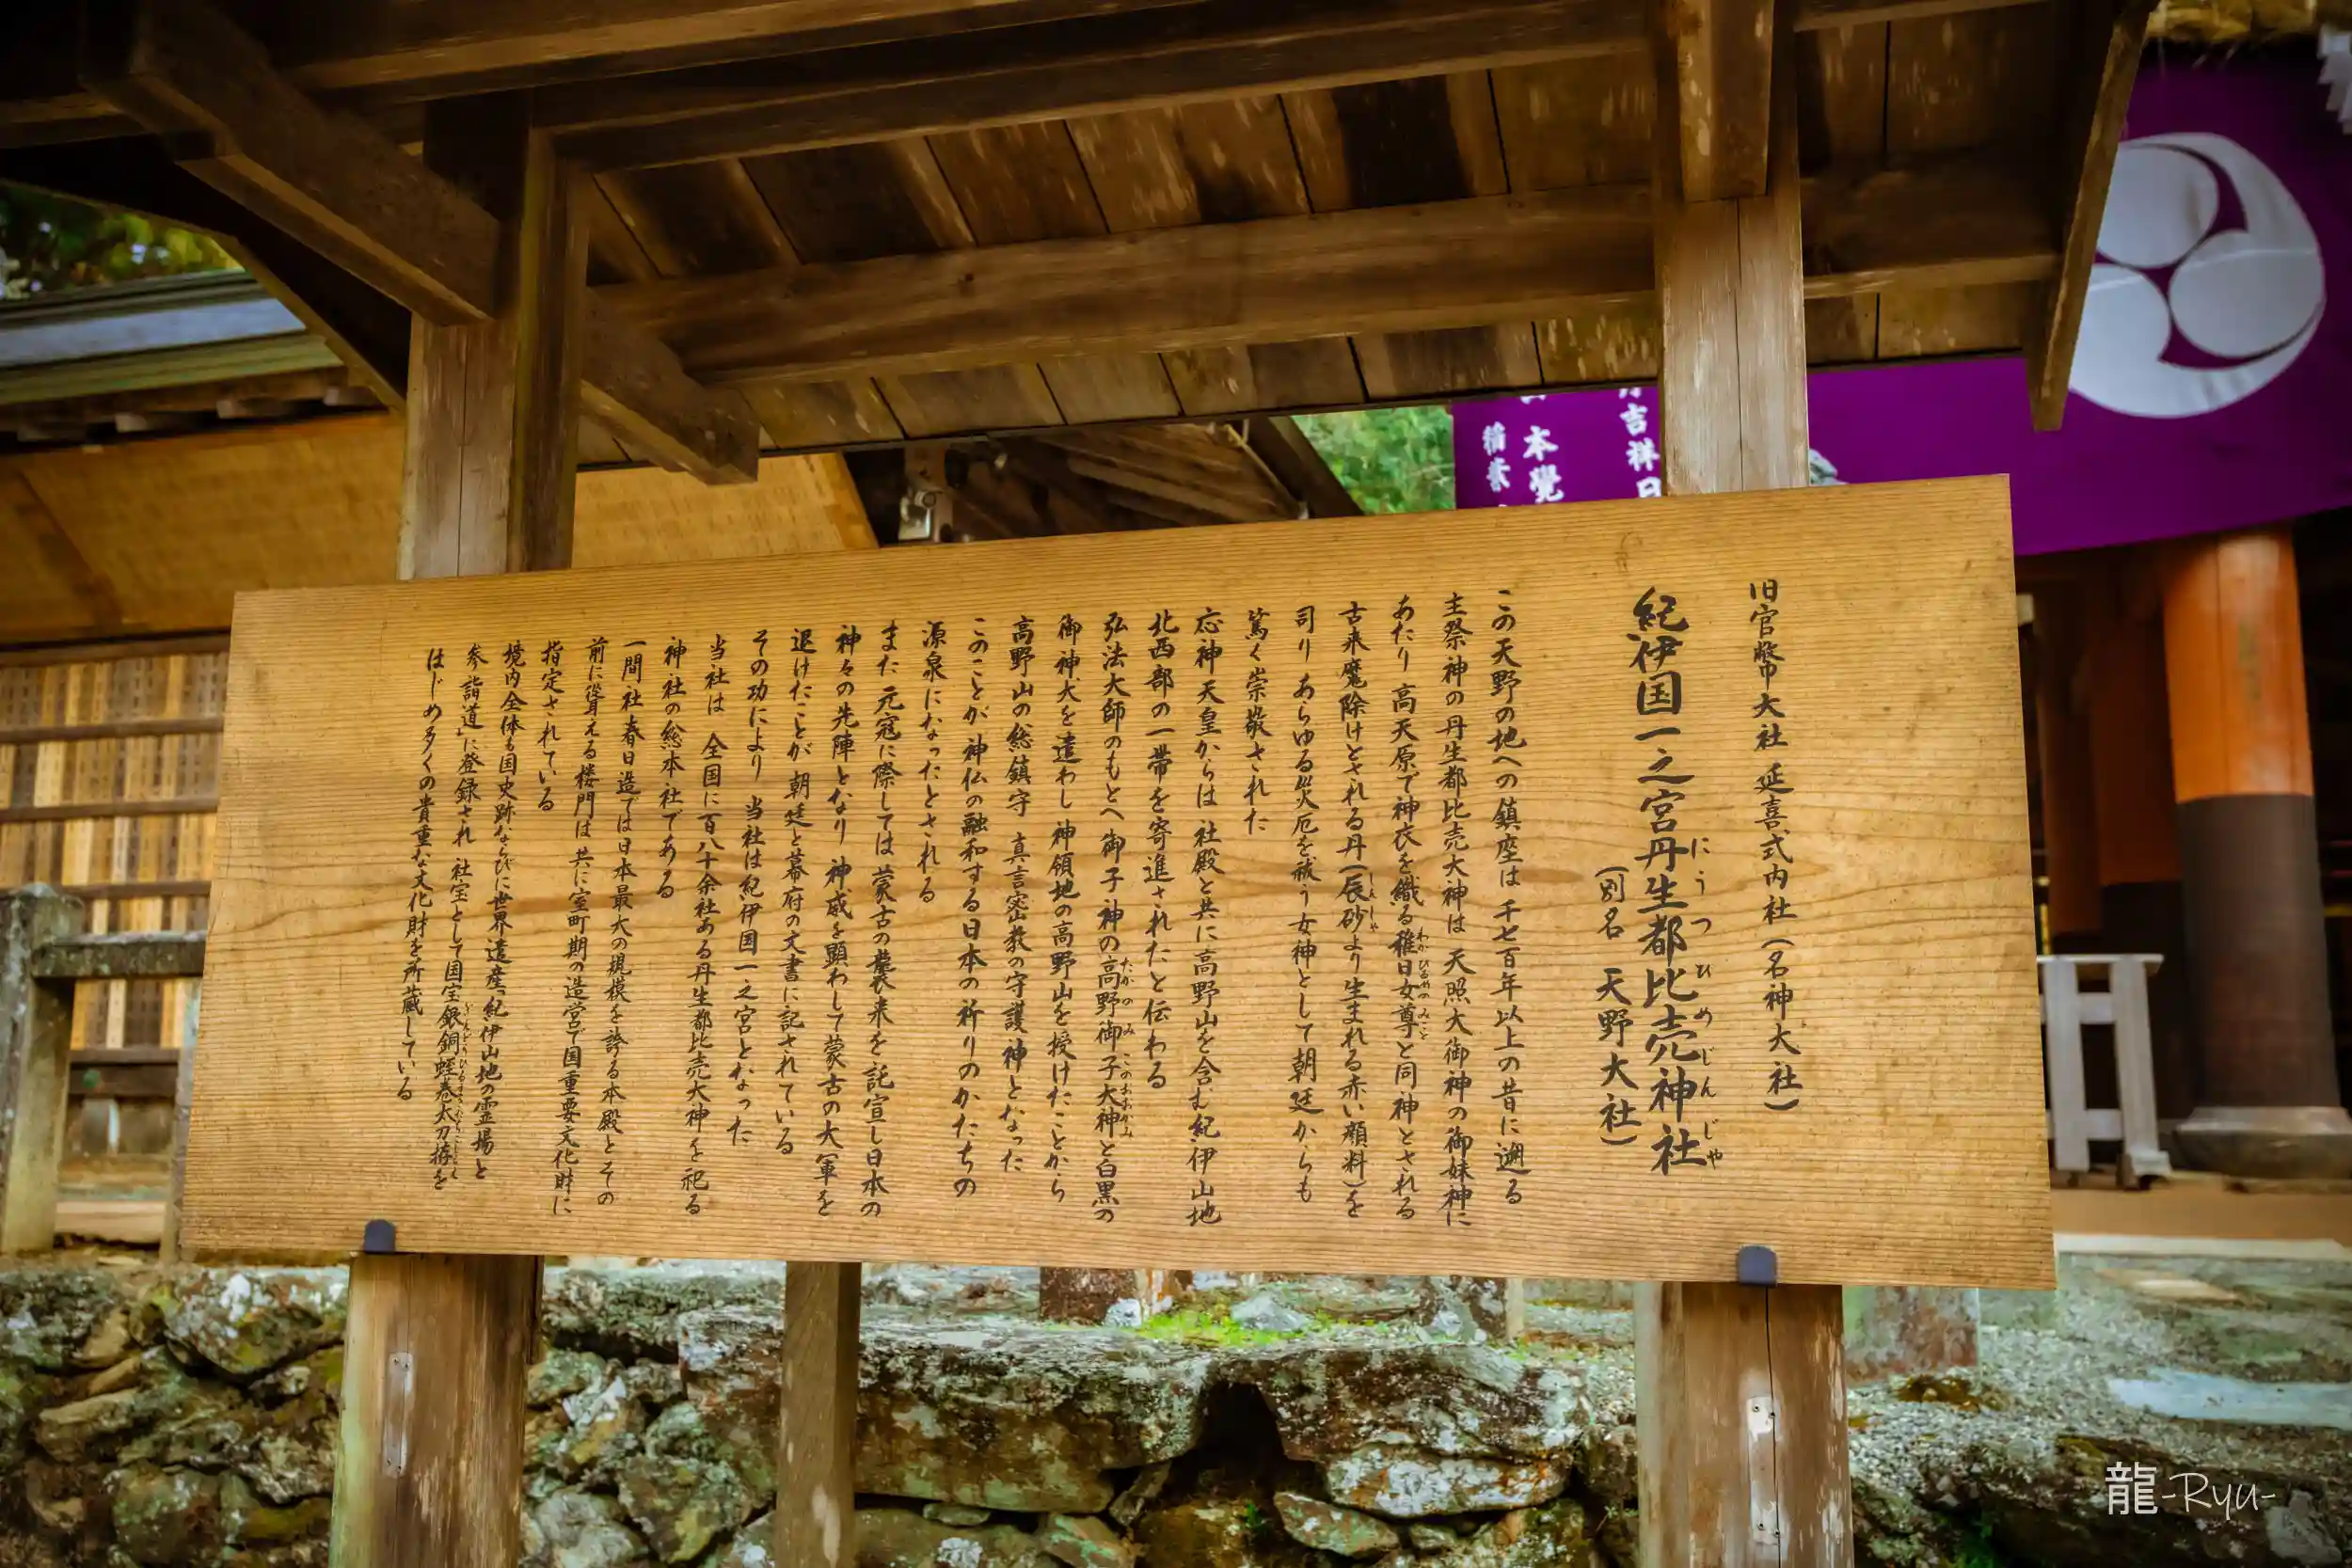 旧官幣大社 延喜式内社(名神大社)
紀伊国一之宮丹生都比売神社
にうつひめじんじゃ
(別名 天野大社)
この天野の地への鎮座は 千七百年以上の昔に遡る
主祭神の丹生都比売大神は 天照大御神の御妹神に
あたり 高天原で神衣を織る稚日女尊と同神とされる
わかひるめのみこと
古来魔除けとされる丹(辰砂より生まれる赤い顔料)を
しんしゃ
司り あらゆる災厄を祓う女神として 朝廷からも
篤く崇敬された
応神天皇からは 社殿と共に高野山を含む紀伊山地
北西部の一帯を寄進されたと伝わる
弘法大師のもとへ 御子神の高野御子大神と白黒の
たかのみこのおおかみ
御神犬を遣わし 神領地の高野山を授けたことから
高野山の総鎮守 真言密教の守護神となった
このことが 神仏の融和する日本の祈りのかたちの
源泉になったとされる
また 元寇に際しては 蒙古の襲来を託宣し日本の
神々の先陣となり 神威を顕わして蒙古の大軍を
退けたことが 朝廷と幕府の文書に記されている
その功により 当社は紀伊国一之宮となった
当社は 全国に百八十余社ある丹生都比売大神を祀る
神社の総本社である
一間社春日造では日本最大の規模を誇る本殿とその
前に聳える楼門は 共に室町期の造営で国重要文化財に
指定されている
境内全体も国史跡ならびに世界遺産「紀伊山地の霊場と
参詣道」に登録され 社宝として国宝銀銅蛭巻太刀拵を
ぎんどうひるまきたちこしらえ
はじめ多くの貴重な文化財を所蔵している
吉祥日
本覺
稲葉
龍-Ryu-